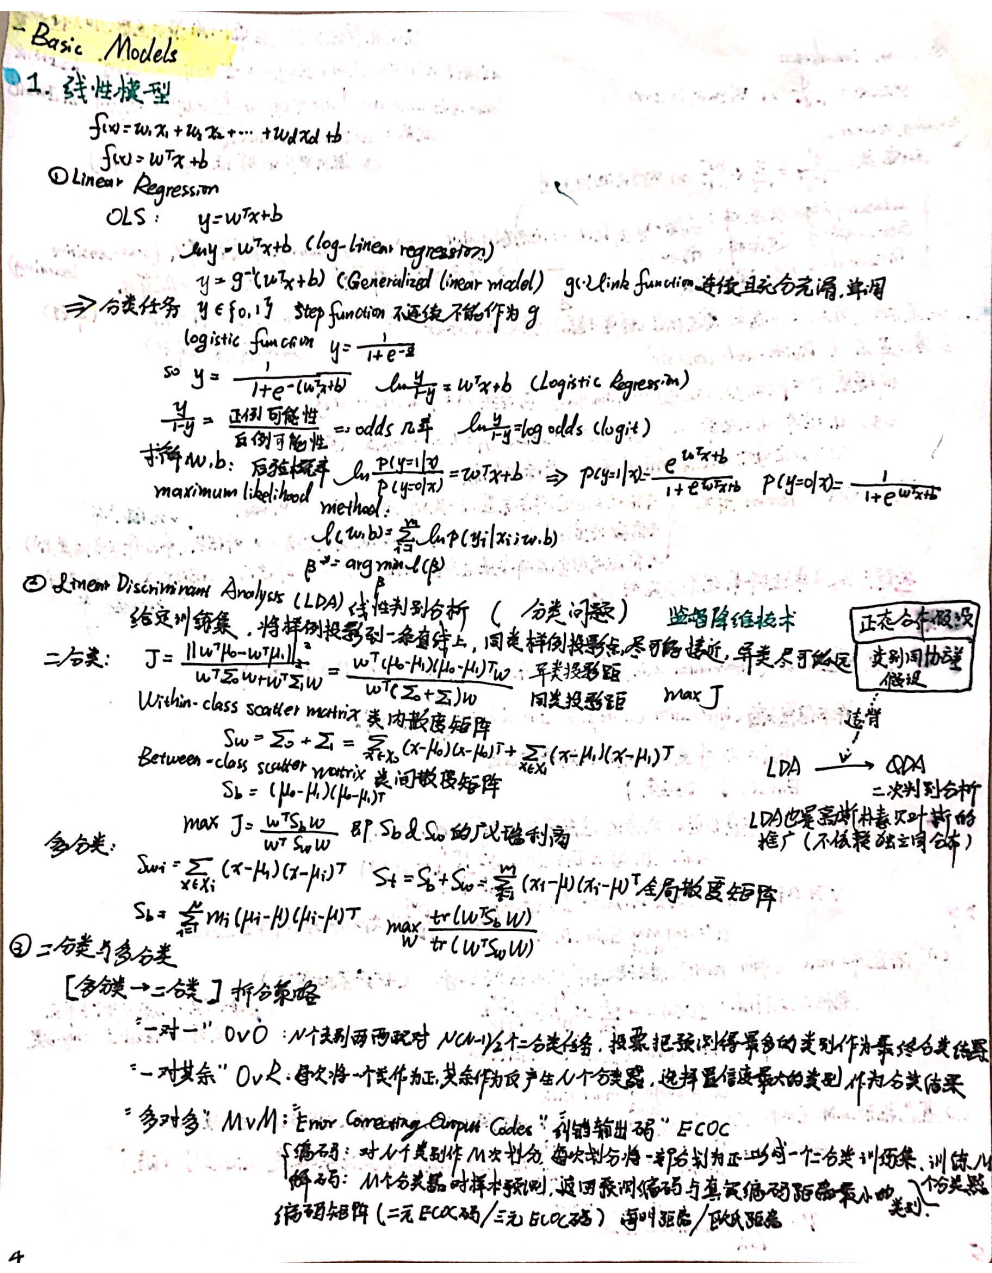 一 Basic Models
1. 线性模型
f(x)=w₁x₁+w₂x₂+…+w_d x_d+b
f(x)=wᵀx+b
① Linear Regression
OLS: y=wᵀx+b
lny=wᵀx+b (log-linear regression)
y=g⁻¹(wᵀx+b) (Generalized linear model) g(·) link function 连续且充分光滑,单调
⇒ 分类任务 y∈{0,1} step function 不连续不能作为g
logistic function y=1/(1+e^-z)
so y=1/(1+e^-(wᵀx+b)) ln y/(1-y)=wᵀx+b (Logistic Regression)
y/(1-y)=正例可能性/反例可能性 => odds 几率 ln y/(1-y)=log odds (logit)
求解w,b: 后验概率 ln P(y=1|x)/P(y=0|x)=wᵀx+b ⇒ P(y=1|x)=e^(wᵀx+b)/(1+e^(wᵀx+b)) P(y=0|x)=1/(1+e^(wᵀx+b))
maximum likelihood
method:
l(w,b)=Σ_{i=1}^m ln P(yi|xi;w,b)
β*=argmin_β l(β)
② Linear Discriminant Analysis (LDA) 线性判别分析 (分类问题) 监督降维技术
给定训练集,将样例投影到一条直线上,同类样例投影点尽可能接近,异类尽可能远
正态分布假设
类别同协方差
假设
二分类: J=||wᵀμ₀-wᵀμ₁||₂²/(wᵀΣ₀w+wᵀΣ₁w)=wᵀ(μ₀-μ₁)(μ₀-μ₁)ᵀw/(wᵀ(Σ₀+Σ₁)w) 异类投影距 同类投影距 max J
Within-class scatter matrix 类内散度矩阵
违背
Sw=Σ₀+Σ₁=Σ_{x∈X₀}(x-μ₀)(x-μ₀)ᵀ+Σ_{x∈X₁}(x-μ₁)(x-μ₁)ᵀ
Between-class scatter matrix 类间散度矩阵
LDA → QDA
二次判别分析
Sb=(μ₀-μ₁)(μ₀-μ₁)ᵀ
LDA也是高斯朴素贝叶斯的
推广(不依赖独立同分布)
max J=wᵀSbw/wᵀSww 即Sb与Sw的广义瑞利商
多分类:
Swi=Σ_{x∈Xi}(x-μi)(x-μi)ᵀ St=Sb+Sw=Σ_{i=1}^m(xi-μ)(xi-μ)ᵀ 全局散度矩阵
Sb=Σ_{i=1}^N mi(μi-μ)(μi-μ)ᵀ max_W tr(WᵀSbW)/tr(WᵀSwW)
③ 二分类与多分类
[多分类→二分类] 拆分策略
"一对一" OvO: N个类别两两配对 N(N-1)/2个二分类任务,投票把预测得最多的类别作为最终分类结果
"一对其余" OvR: 每次将一个类作为正,其余作为反产生N个分类器,选择置信度最大的类别作为分类结果
"多对多" MvM: Error Correcting Output Codes "纠错输出码" ECOC
编码: 对N个类别作M次划分 每次划分将一部分划为正 一个二分类训练集,训练M
个分类器
解码: M个分类器对样本预测,返回预测编码与真实编码距离最小的
类别
编码矩阵(二元ECOC码/三元ECOC码) 海明距离/欧氏距离
4